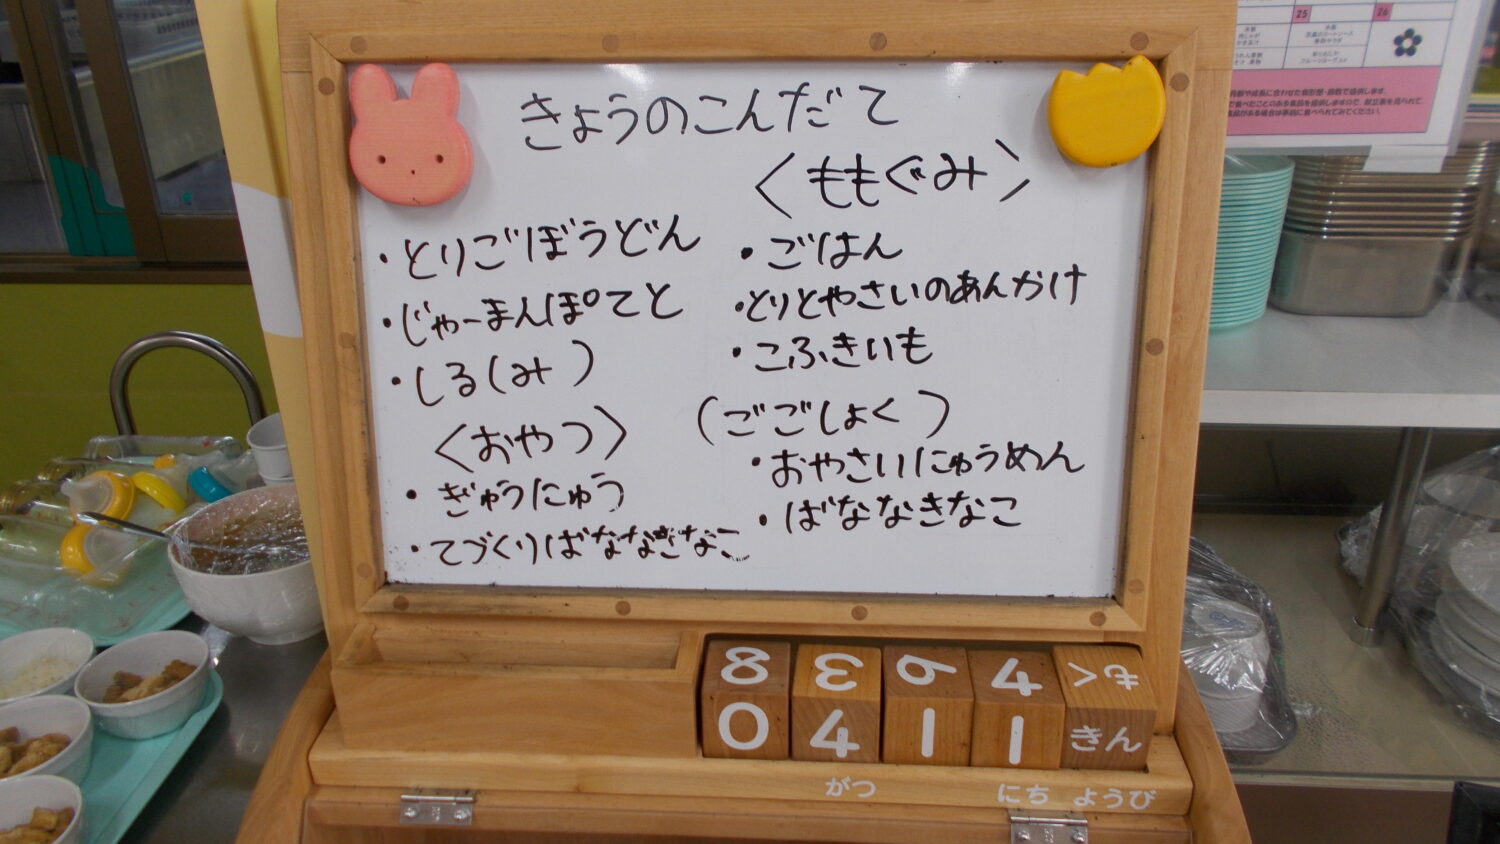 きょうのこんだて
・とりごぼうどん
・じゃーまんぽてと
・しる(み)
〈おやつ〉
・ぎゅうにゅう
・てづくりばななきなこ
〈ももぐみ〉
・ごはん
・とりとやさいのあんかけ
・こふきいも
(ごごしょく)
・おやさいにゅうめん
・ばななきなこ
8 3 6 4 もく
0 4 1 1 きん
がつ にち ようび
25 26